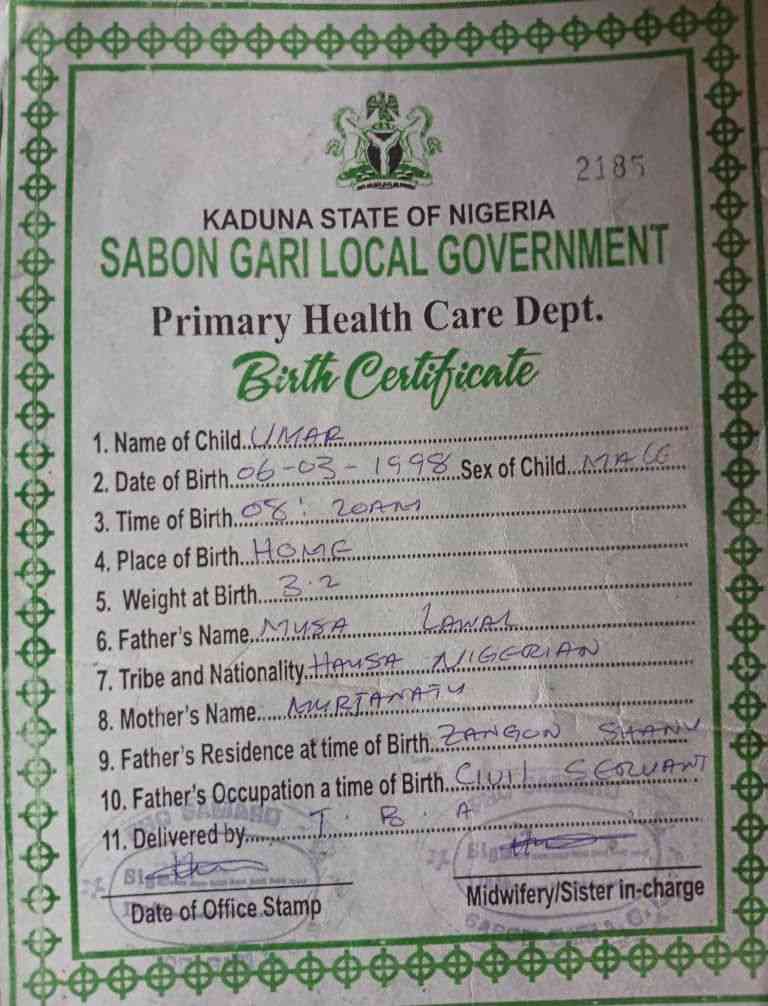 2185
KADUNA STATE OF NIGERIA
SABON GARI LOCAL GOVERNMENT
Primary Health Care Dept.
Birth Certificate
1. Name of Child..UMAR
2. Date of Birth.06-03-1998 Sex of Child..MALE
3. Time of Birth..08:20AM
4. Place of Birth..HOME
5. Weight at Birth....3.2
6. Father's Name.MUSA LAWAL
7. Tribe and Nationality.HAUSA NIGERIAN
8. Mother's Name.....MURJANATU
9. Father's Residence at time of Birth..ZANGON SHANU
10. Father's Occupation a time of Birth..CIVIL SERVANT
11. Delivered by..........T.B.A
Date of Office Stamp
Midwifery/Sister in-charge